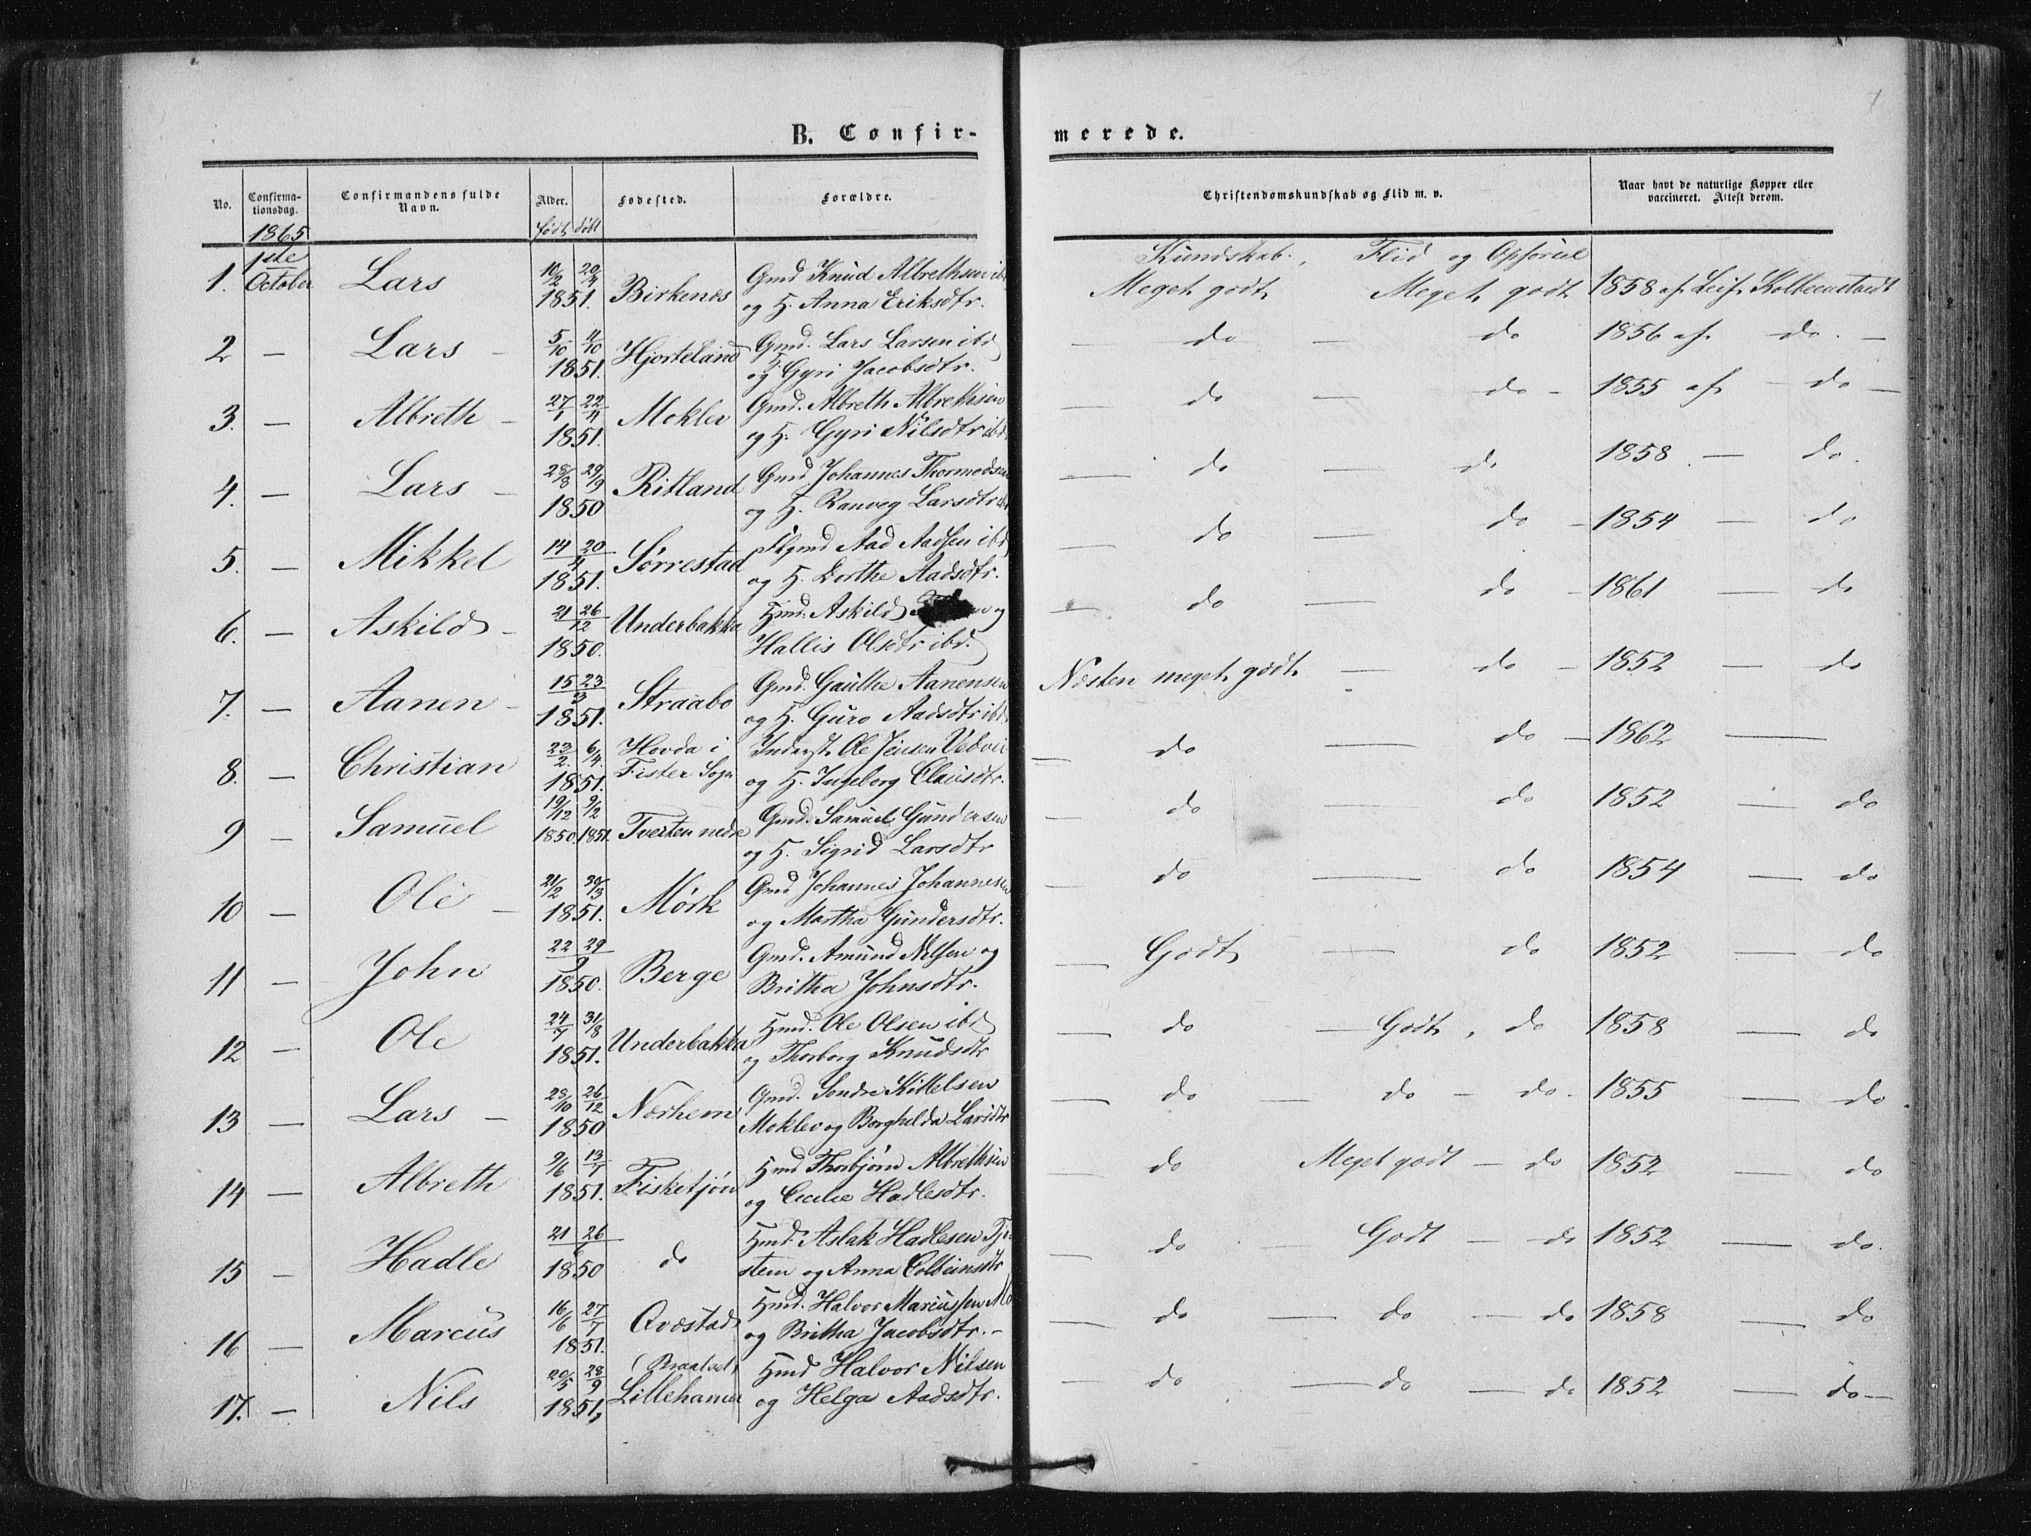 B. Confir-
merede.
No.
Confirma-
tionsdag.
Confirmandens fulde
Navn.
Alder.
Fødested.
Forældre.
Christendomskundskab og Flid m. v.
Naar havt de naturlige Kopper eller
vaccineret. Attest derom.
1865
født døbt
Kundskab. Flid og Opførsel
1. 1ste October Lars 10/2 20/4 1851. Birkenes Gmd Knud Albrethsen ibd
og H. Anna Eriksdtr. Meget godt Meget godt 1858 af Leif Kolbeenstvedt
2 — Lars — 5/10 11/10 1851. Hjorteland Gmd. Lars Larsen ibd
og Gyri Jacobsdtr. — do — do 1856 af do. —
3. — Albreth — 27/1 22/4 1851. Moklev Gmd. Albreth Albrethsen
og H. Gyri Nilsdtr ibd — do — do — 1855 af — do —
4. — Lars — 28/8 29/9 1850 Ritland Gmd Johannes Thormodsen
og H. Ranveg Larsdtr — do — do 1858 — do.
5. — Mikkel 14 20 1851. Sørrestad Aad Aadsen ibd
og H. Dorthe Aadsdtr. — do do — 1854 — do
6. — Askild — 21 26/12 1850. Underbakka Hmd. Askild og
Hallis Olsdtr ibd. — do — do — 1861 — do
7. — Aanen — 15 23/3 1851. Straabø Gmd. Gauthe Aanensen
og H. Guro Aadsdtr ibd Næsten meget godt — do — 1852 — do
8. — Christian 23/2 6/4 1851. Hovda i
Fister Sogn Inderst Ole Jensen
og H. Ingeborg Clausdtr. — do — do — 1862 —
9 — Samuel 19/12 1850. 9/2 1851. Tveiten nedre Gmd. Samuel Gundersen
og H. Sigrid Larsdtr — do — do 1852 — do
10 — Ole — 21/2 30/3 1851. Mørk Gmd Johannes Johannesen
og Martha Gundersdtr. — do — do 1854 — do
11 — John 22 29/9 1850. Berge Gmd. Amund Nilsen og
Britha Johnsdtr. — Godt — do 1852 — do
12 — Ole 24/7 31/8 1851. Underbakka Hmd. Ole Olsen ibd
og Thorborg Knudsdtr — do — Godt, do 1858 — do
13 — Lars — 28/10 26/12 1850 Nærhem Gmd. Sondre Kittelsen
Moklev og Borghelda Larsdtr — do — do — do. 1855 — do.
14 — Albreth 9/6 13/7 1851. Fisketjøn Hmd Thorbjørn Albrethsen
og Cecilie Hadlesdtr. — do Meget godt — do 1852 — do
15 — Hadle 21 26 1850 do Hmd. Aslak Hadlesen
og Anna Colbeinsdtr — do — Godt — do 1852 — do.
16 — Marcus 16/6 27/7 1851. Qvæstad Hmd. Halvor Marcussen
og Britha Jacobsdtr. — — do — do — do 1858 — do
17. — Nils 20/5 28/9 1851. (Braatvet)
Lillehamer Hmd Halvor Nilsen
og Helga Aadsdtr. — do — do — do 1852 — do —